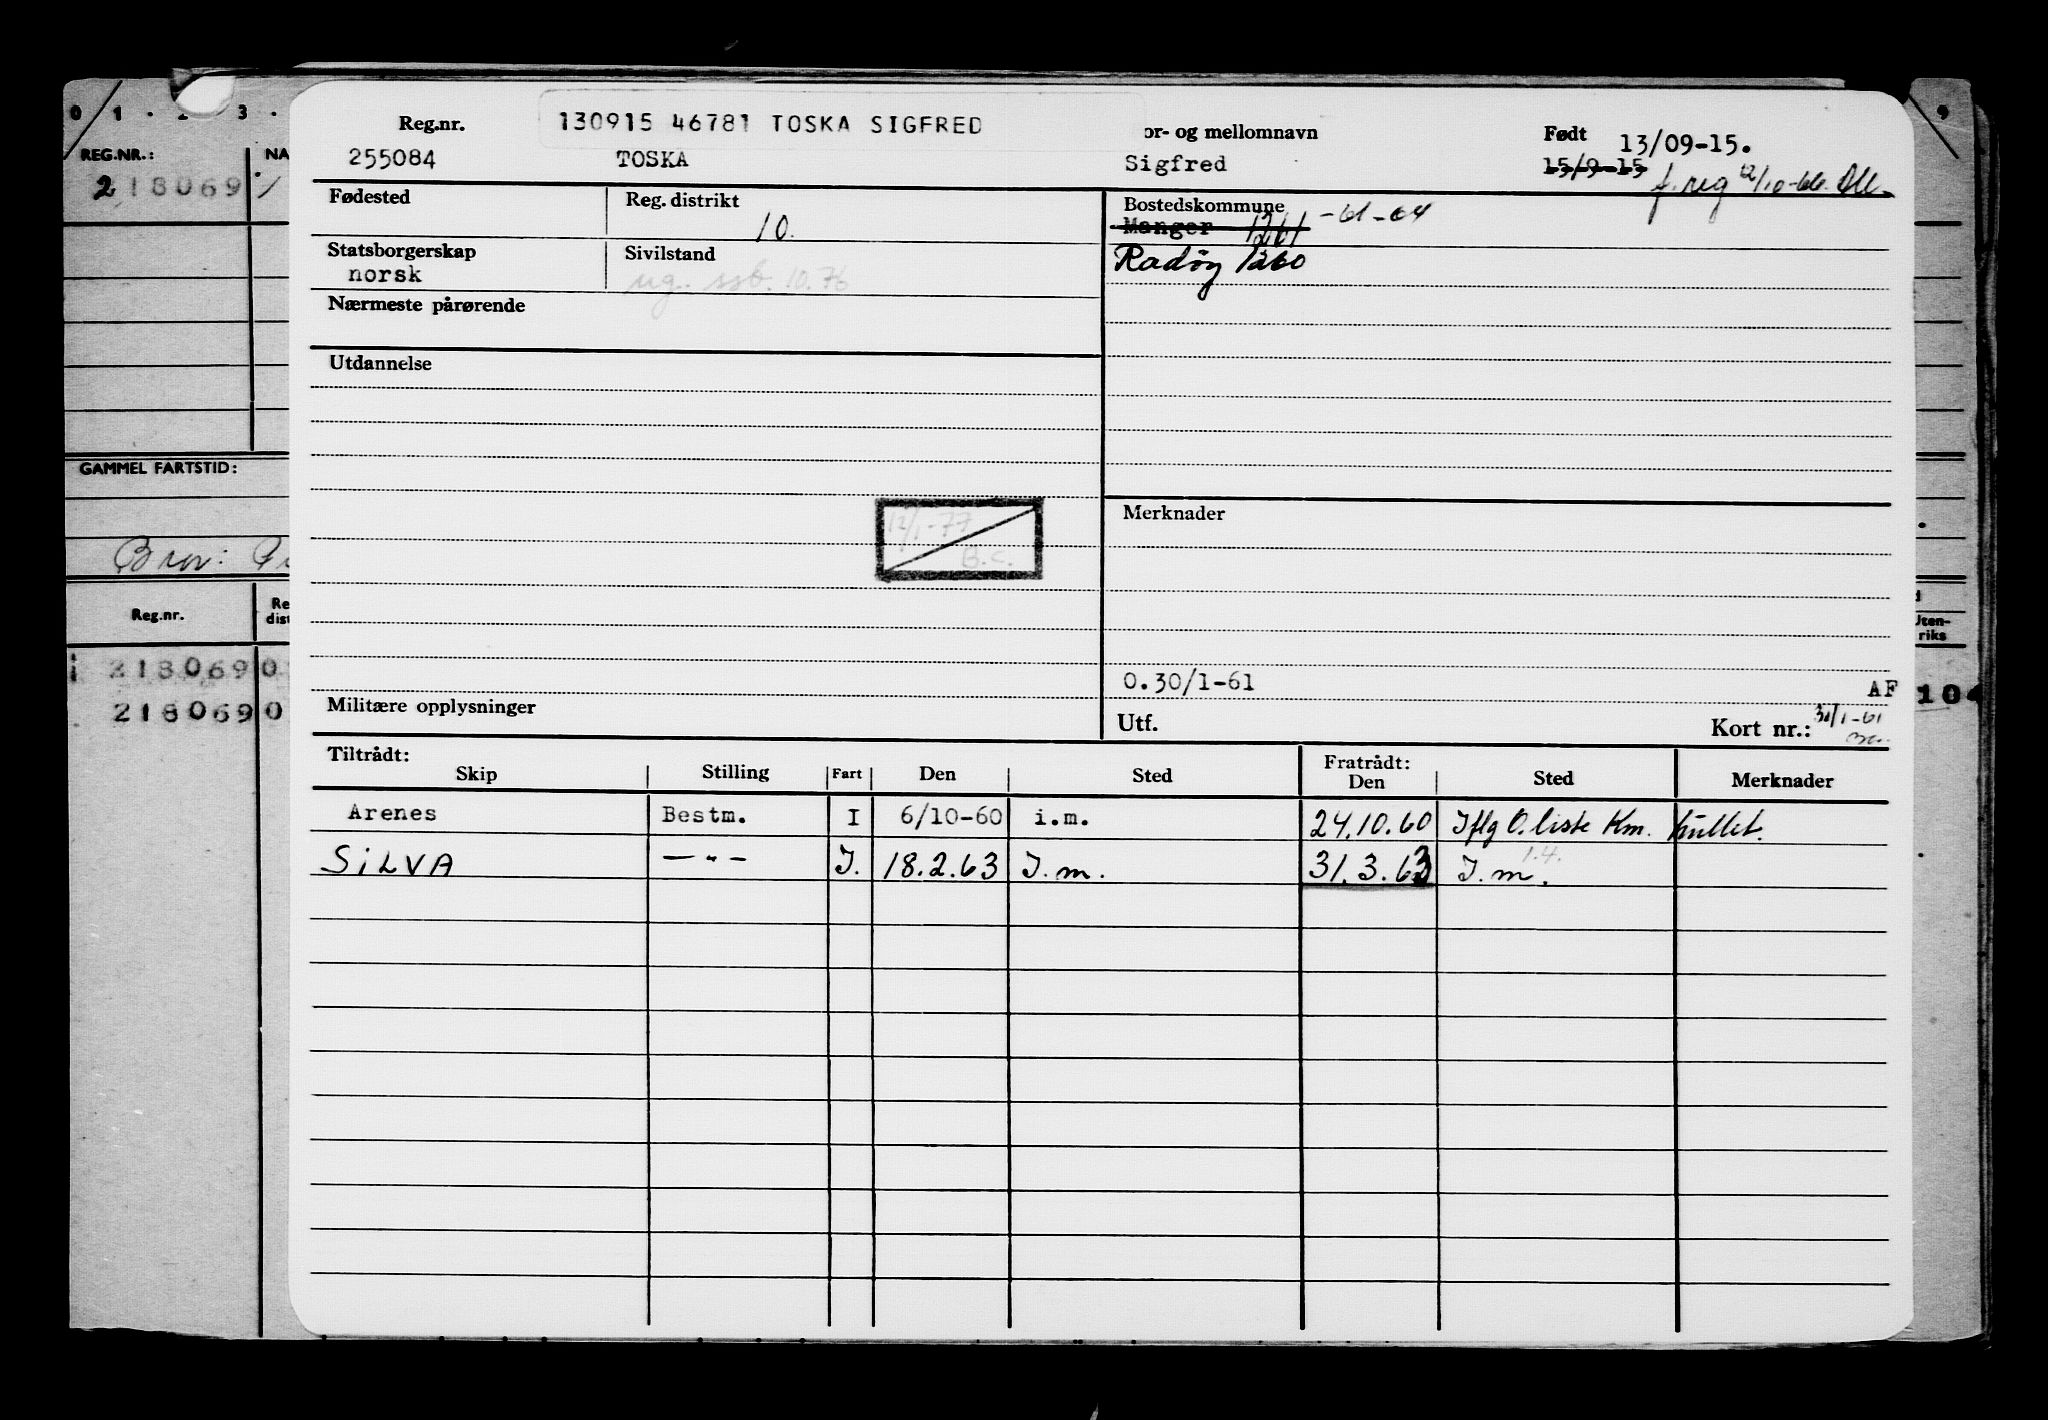 0 1 . 2 3 .
9
REG.NR.: NA
218069
GAMMEL FARTSTID:
Bror:
Reg.nr. Re
dist
218069 0
218069 0
Uten-
riks
104
130915 46781 TOSKA SIGFRED
Reg.nr. or- og mellomnavn Født 13/09-15.
255084 TOSKA Sigfred 15/9-15 f. reg 12/10-66.
Fødested Reg. distrikt Bostedskommune
10. Manger 1261 -61-64
Statsborgerskap Sivilstand Radøy 1260
norsk ug. ssb. 10.76
Nærmeste pårørende
Utdannelse
12/1-77 Merknader
B.C.
0.30/1-61 AF
Militære opplysninger Utf. Kort nr.: 31/1-61
Tiltrådt: Fratrådt:
Skip Stilling Fart Den Sted Den Sted Merknader
Arenes Bestm. I 6/10-60 i.m. 24.10.60 Iflg O.liste Km. kullet.
SiLVA —"— I. 18.2.63 I.m. 31.3.63 I.m. 1.4.